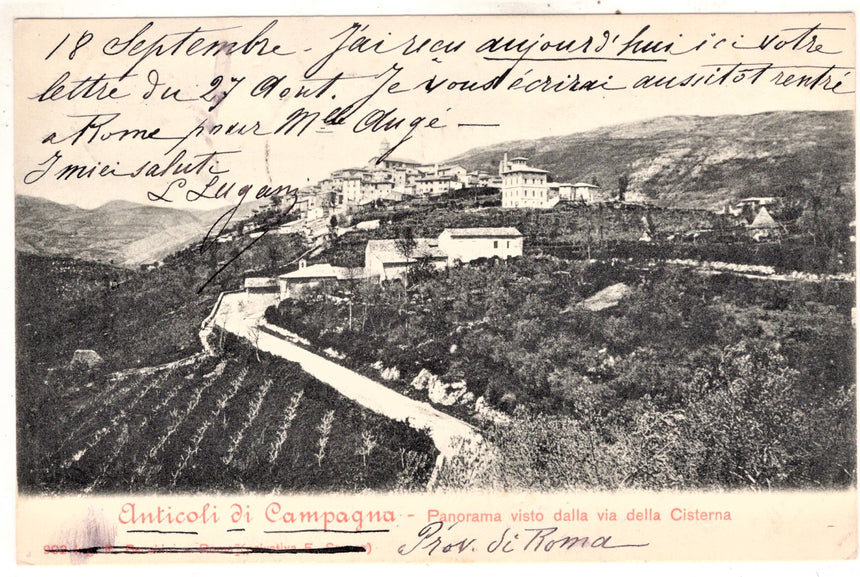 18 Septembre - J'ai reçu aujourd'hui ici votre
lettre du 27 Aout. Je vous écrirai aussitot rentré
a Rome pour Mlle Augé —
I miei saluti
L Lugani
Anticoli di Campagna - Panorama visto dalla via della Cisterna
Prov. di Roma